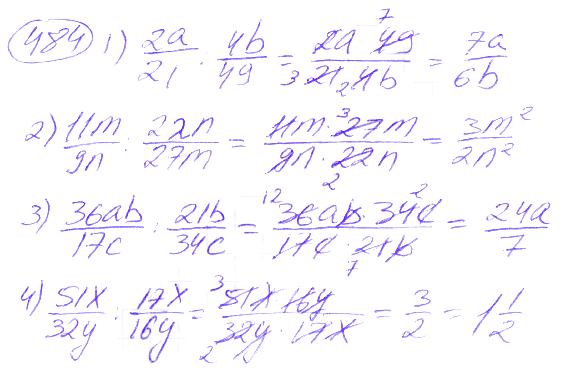 484 1) 2a/21 : 4b/49 = 2a 49/21 4b = 7a/6b
2) 11m/9n : 22n/27m = 11m · 27m/9n · 22n = 3m²/2n²
3) 36ab/17c : 21b/34c = 36ab · 34c/17c · 21b = 24a/7
4) 51x/32y : 17x/16y = 51x 16y/32y · 17x = 3/2 = 1 1/2